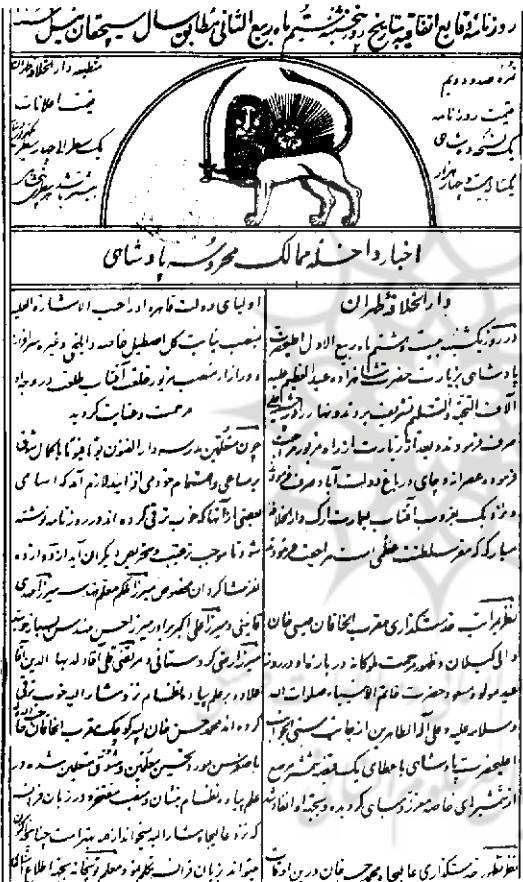 روزنامه وقایع اتفاقیه بتاریخ روز پنجشنبه ششم ماه ربیع الثانی مطابق سال سیچقان ئیل
نمره صد و دویم
قیمت روزنامه
یک نسخه ده شاهی
منطبعه دارالخلافه طهران
قیمت اعلانات
یک سطر الی چهار سطر
بیشتر باشد هر سطری
اخبار داخله ممالک محروسه پادشاهی
دارالخلافه طهران
در روز یکشنبه بیست و هشتم ماه ربیع الاول اعلیحضرت
پادشاهی بزیارت حضرت شاهزاده عبدالعظیم علیه
آلاف التحیة و التسلیم تشریف برده و نهار را در
صرف فرموده بعد از زیارت از راه مزبور مراجعت
فرموده و عصرانه و چای در باغ دولت آباد صرف
و نزدیک بغروب آفتاب بعمارت ارک دارالخلافه
مبارکه که مقر سلطنت عظمی است مراجعت فرمودند
نظر بمراتب خدمتگذاری مقرب الخاقان عیسی خان
والی گیلان و ظهور مرحمت ملوکانه درباره او در روز
عید مولود مسعود حضرت خاتم الانبیاء صلوات الله
و سلامه علیه و علی آله الطاهرین از جانب سنی الجوانب
اعلیحضرت پادشاهی باعطای یک شمشیر مرصع
از شمشیرهای خاصه معزز و مباهی گردیده و بعهده
نظر بظهور خدمتگذاری عالیجاه محمد خان درین اوقات
اولیای دولت قاهره او را حسب الاشاره العلیه
بمنصب نیابت کل اصطبل خاصه و ایلخی و غیره سرافراز
و در ازاء منصب مزبور خلعت آفتاب طلعت در وجه او
مرحمت و عنایت گردید
چون متعلمین مدرسه دارالفنون یوما فیوما با کمال شوق
بر ساعی و اهتمام خود می افزایند لازم آمد که اسامی
بعضی از آنها که خوب ترقی کرده اند در روزنامه نوشته
شود تا موجب ترغیب و تحریص دیگران آید از ده
نفر شاگردان مخصوص میرزا ملکم معلم هندسه میرزا مهدی
کاشی و میرزا علی اکبر و میرزا حسن مهندس بسیار خوب
میرزا رضی کردستانی و مرتضی قلی آقا ولد بهاء الدین آقا
علاوه بر علم پیاده نظام نزد مشارالیه خوب ترقی
کرده اند محمد حسن خان پسر کوچک مقرب الخاقان
باصغر سن مورد تحسین معلمین و مشوق متعلمین شده در
علم پیاده نظام بنشان و منصب مفتخر و در زبان فرانسه
که نزد عالیجاه مشارالیه میخواند از همه بهتر است چنانچه
میتواند بزبان فرانسه تکلم نمود و معلم توپخانه نیز اطلاع